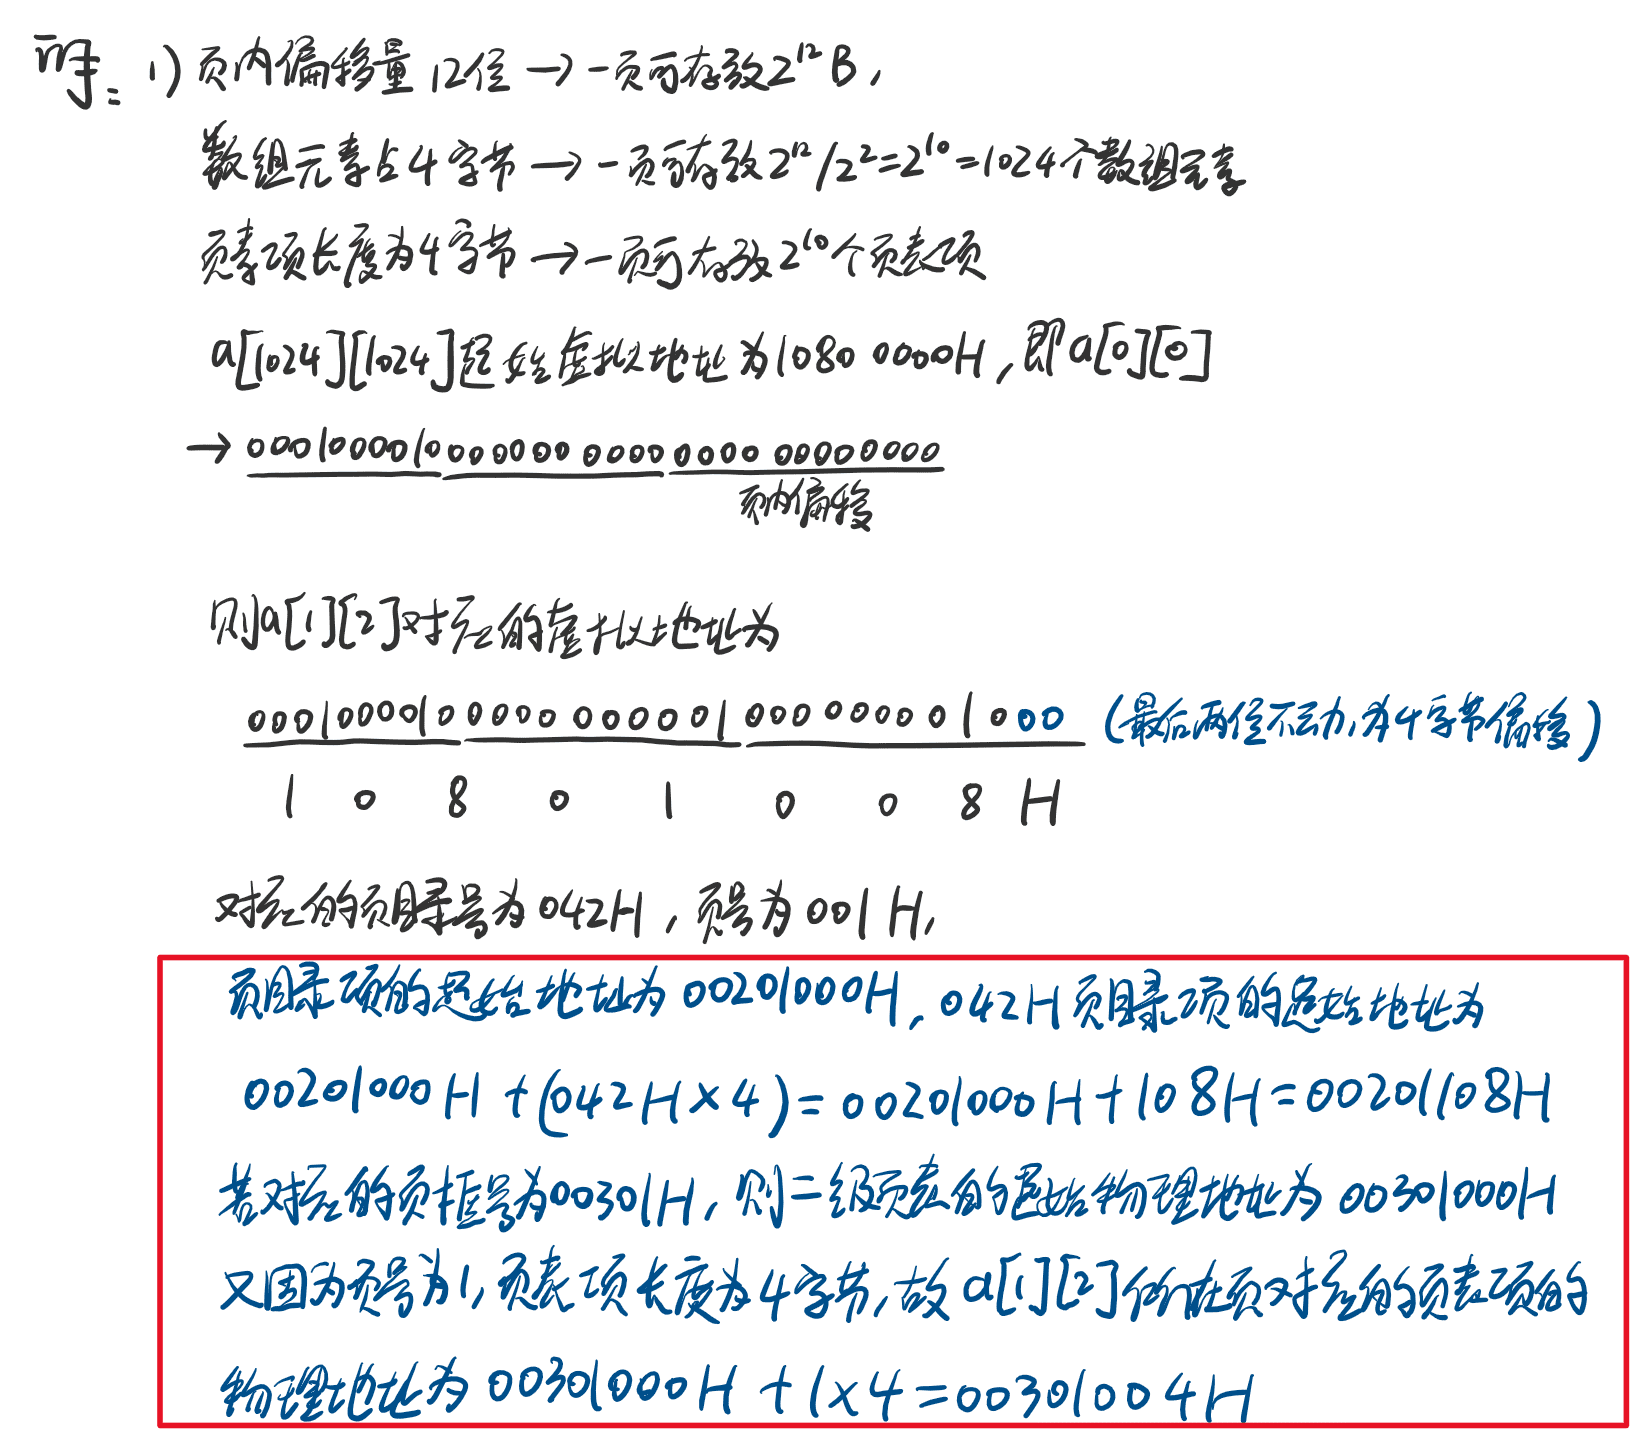 解: 1) 页内偏移量 12位 → 一页可存放2¹²B,
数组元素占4字节 → 一页可存放2¹²/2²=2¹⁰=1024个数组元素
页表项长度为4字节 → 一页可存放2¹⁰个页表项
a[1024][1024]起始虚拟地址为1080 0000H, 即a[0][0]
→ 0001000010 000000 0000 0000 00000000
页内偏移
则a[1][2]对应的虚拟地址为
0001000010 0000 000001 000000001000 (最后两位不动,为4字节偏移)
1 0 8 0 1 0 0 8 H
对应的页目录号为042H, 页号为001H,
页目录项的起始地址为00201000H, 042H页目录项的起始地址为
00201000H+(042H×4)=00201000H+108H=00201108H
若对应的页框号为00301H, 则二级页表的起始物理地址为00301000H
又因为页号为1, 页表项长度为4字节, 故a[1][2]所在页对应的页表项的
物理地址为00301000H+1×4=00301004H